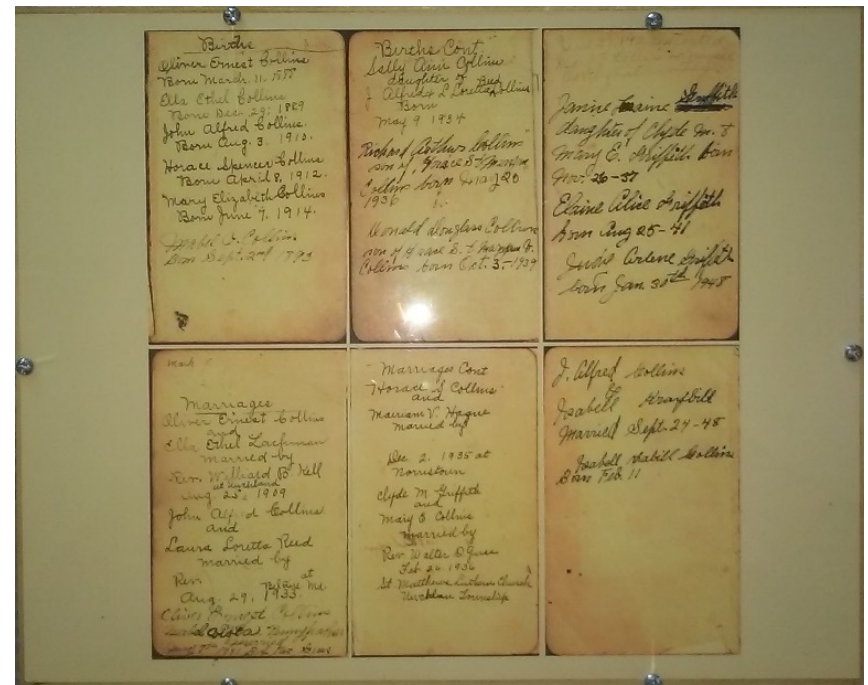 Births
Oliver Ernest Collins
Born March. 11. 1888
Ella Ethel Collins
Born Dec. 29, 1889
John Alfred Collins.
Born Aug. 3, 1910.
Horace Spencer Collins
Born April 8, 1912.
Mary Elizabeth Collins
Born June 7, 1914.
J. Collins
Born Sept. 2nd 1893
Births Cont.
Sally Ann Collins
daughter of
J Alfred & L Loretta Collins
Born
May 9 1934
Richard Arthur Collins
son of Horace S. &
Collins born 20
1936
Donald Douglass Collins
son of Horace S. & V.
Collins born Oct. 3 - 1939
Janine
daughter of Clyde M. &
Mary E. Griffith born
Nov. 26-37
Elaine Alice Griffith
born Aug 25-41
Arlene Griffith
born Jan. 30th 1948
Marriages
Oliver Ernest Collins
and
Ella Ethel Lachman
married by
Rev. Willard B Kell
Aug. 25, 1909
John Alfred Collins
and
Laura Loretta Reed
married by
Rev. at
Aug. 29, 1933.
Oliver Ernest Collins
Marriages Cont
Horace S Collins
and
V. Hague
married by
Dec. 2. 1935 at
Norristown
Clyde M Griffith
and
Mary E Collins
married by
Rev Walter
Feb. 26 1936
St Matthews Lutheran Church
Uwchlan Township
J. Alfred Collins
&
Isabell Graybill
Married Sept-24-48
Isabell Collins
Born Feb. 11